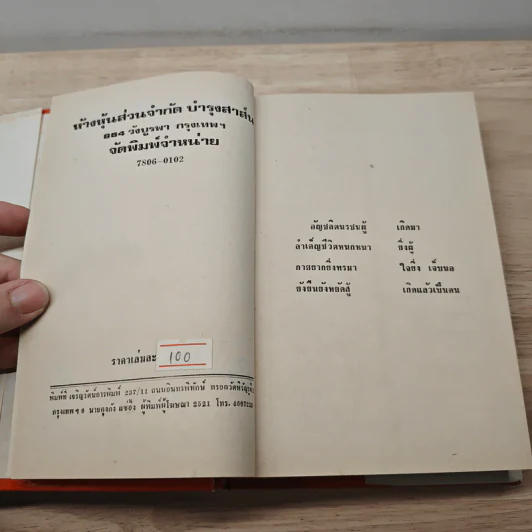 ห้างหุ้นส่วนจำกัด บำรุงสาส์น
884 วังบูรพา กรุงเทพฯ
จัดพิมพ์จำหน่าย
7806-0102
ราคาเล่มละ 100
พิมพ์ที่ เจริญรัตน์การพิมพ์ 237/11 ถนนอินทรพิทักษ์ ตรอกวัดหิรัญรูจี
กรุงเทพฯ นายคุงกัง แซ่อึ้ง ผู้พิมพ์ผู้โฆษณา 2521 โทร.
เกิดมา
ลำเค็ญชีวิตหนักหนา ยิ่งผู้
กายยากยิ่งทรมา ใจยิ่ง เจ็บนอ
ยังยืนยังหยัดสู้ เกิดแล้วเป็นคน